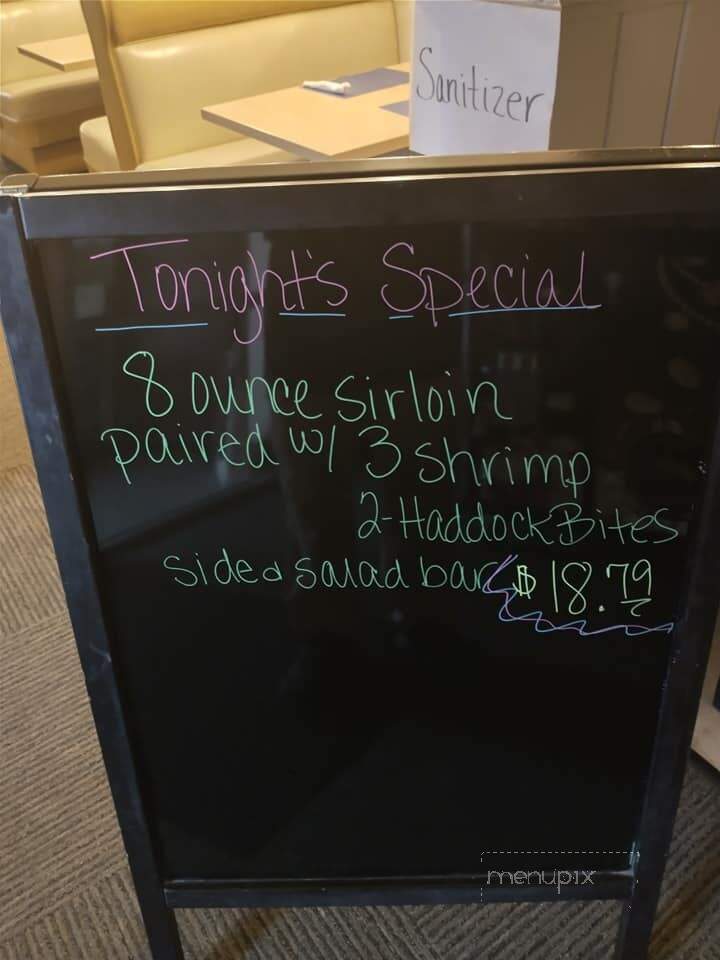 Sanitizer
Tonight's Special
8 ounce sirloin
paired w/ 3 shrimp
2-Haddock Bites
side & salad bar $18.79
menupix